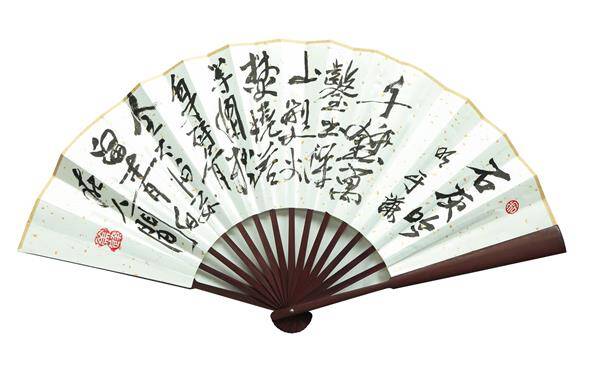 石灰吟
明于謙
千鎚萬
鑿出深
山烈火
焚燒若
等閑粉
身碎骨
全不怕要
留青白
在人間